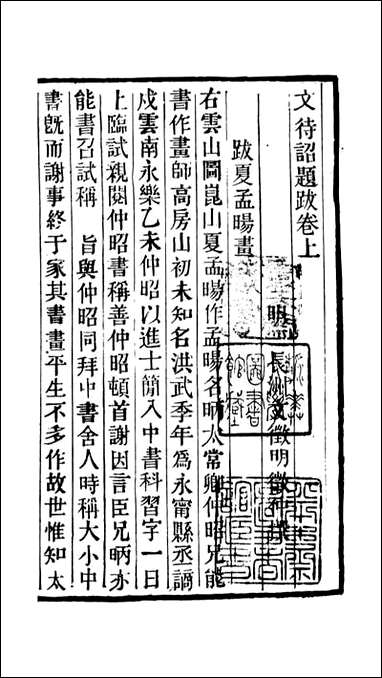 文待詔題跋卷上
明 長洲文徵明
跋夏孟暘畫
右雲山圖崑山夏孟暘作孟暘名昞太常卿仲昭兄能
書作畫師高房山初未知名洪武季年爲永甯縣丞謫
戍雲南永樂乙未仲昭以進士簡入中書科習字一日
上臨試親閱仲昭書稱善仲昭頓首謝因言臣兄昞亦
能書召試稱 旨與仲昭同拜中書舍人時稱大小中
書旣而謝事終于家其書畫平生不多作故世惟知太